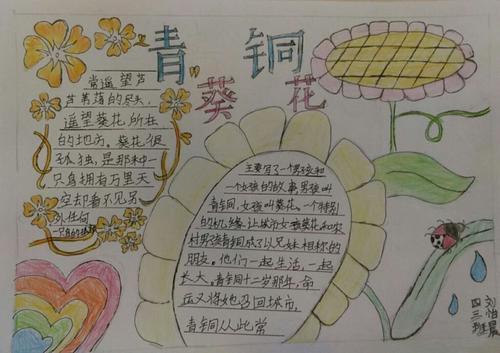 青铜
葵花
主要写了一个男孩和
一个女孩的故事男孩叫
青铜,女孩叫葵花。一个特别
的机缘,让城市女孩葵花和农
村男孩青铜成了以兄妹相称的
朋友。他们一起生活,一起
长大,青铜十二岁那年,命
运又将她召回城市,
青铜从此常
常遥望芦
芦苇荡的尽头,
遥望葵花所在
的地方。葵花很
孤独,是那种一
只鸟拥有万里天
空却看不见另
外任何
一只鸟的
四三班
刘怡晨